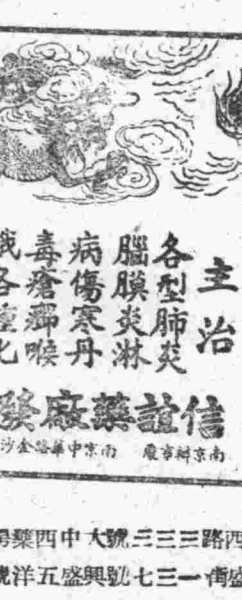 主治
各型肺炎
腦膜炎淋
病傷寒丹
毒瘡癤喉
各種化
信誼藥廠發
南京辦事處 南京中華路金沙
西路三三三號大中西藥
盛街一三七號興盛五洋